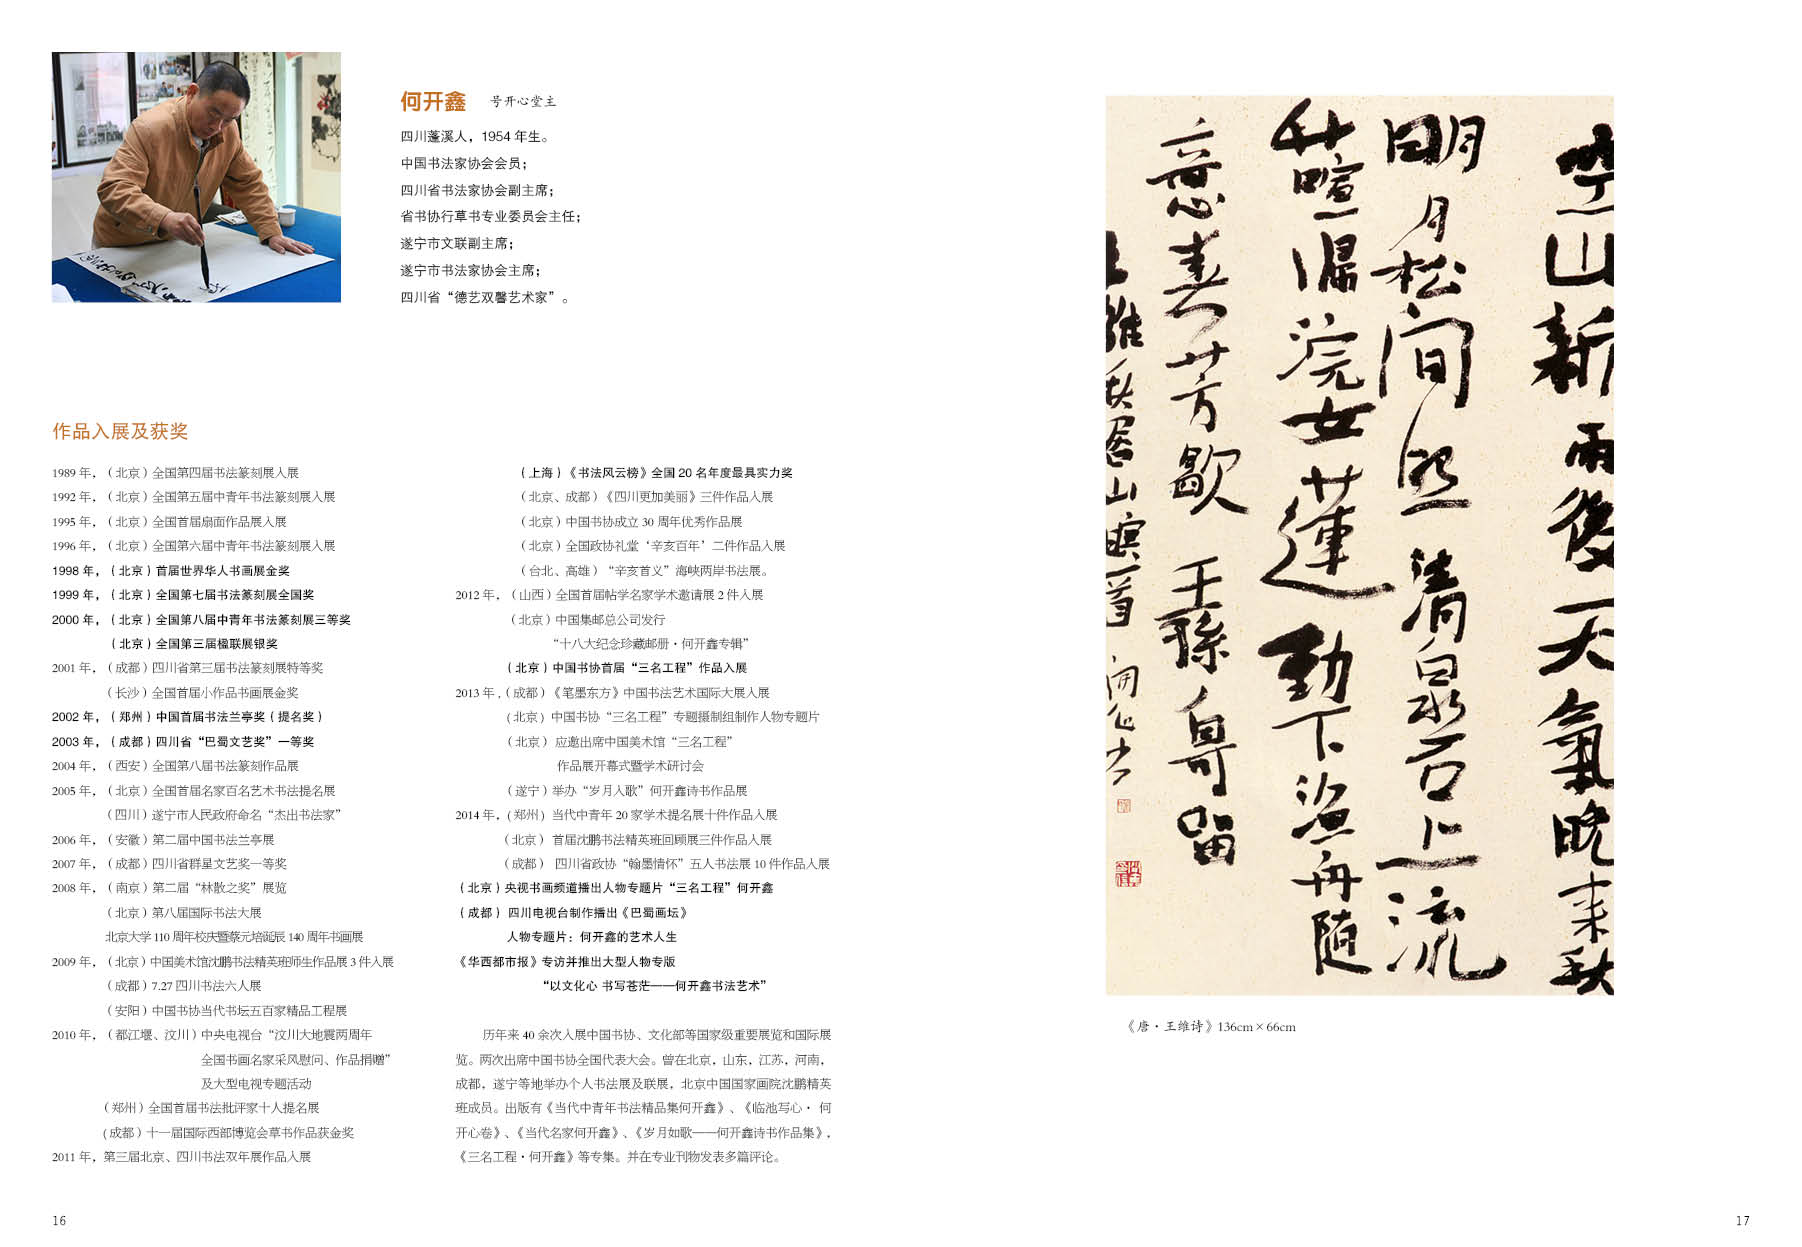 何开鑫 号开心堂主
四川蓬溪人，1954 年生。
中国书法家协会会员；
四川省书法家协会副主席；
省书协行草书专业委员会主任；
遂宁市文联副主席；
遂宁市书法家协会主席；
四川省“德艺双馨艺术家”。
作品入展及获奖
1989 年，（北京）全国第四届书法篆刻展入展
1992 年，（北京）全国第五届中青年书法篆刻展入展
1995 年，（北京）全国首届扇面作品展入展
1996 年，（北京）全国第六届中青年书法篆刻展入展
1998 年，（北京）首届世界华人书画展金奖
1999 年，（北京）全国第七届书法篆刻展全国奖
2000 年，（北京）全国第八届中青年书法篆刻展三等奖
（北京）全国第三届楹联展银奖
2001 年，（成都）四川省第三届书法篆刻展特等奖
（长沙）全国首届小作品书画展金奖
2002 年，（郑州）中国首届书法兰亭奖（提名奖）
2003 年，（成都）四川省“巴蜀文艺奖”一等奖
2004 年，（西安）全国第八届书法篆刻作品展
2005 年，（北京）全国首届名家百名艺术书法提名展
（四川）遂宁市人民政府命名“杰出书法家”
2006 年，（安徽）第二届中国书法兰亭展
2007 年，（成都）四川省群星文艺奖一等奖
2008 年，（南京）第二届“林散之奖”展览
（北京）第八届国际书法大展
北京大学 110 周年校庆暨蔡元培诞辰 140 周年书画展
2009 年，（北京）中国美术馆沈鹏书法精英班师生作品展 3 件入展
（成都）7.27 四川书法六人展
（安阳）中国书协当代书坛五百家精品工程展
2010 年，（都江堰、汶川）中央电视台“汶川大地震两周年
全国书画名家采风慰问、作品捐赠”
及大型电视专题活动
（郑州）全国首届书法批评家十人提名展
（成都）十一届国际西部博览会草书作品获金奖
2011 年，第三届北京、四川书法双年展作品入展
（上海）《书法风云榜》全国 20 名年度最具实力奖
（北京、成都）《四川更加美丽》三件作品入展
（北京）中国书协成立 30 周年优秀作品展
（北京）全国政协礼堂‘辛亥百年’二件作品入展
（台北、高雄）“辛亥首义”海峡两岸书法展。
2012 年，（山西）全国首届帖学名家学术邀请展 2 件入展
（北京）中国集邮总公司发行
“十八大纪念珍藏邮册·何开鑫专辑”
（北京）中国书协首届“三名工程”作品入展
2013 年，（成都）《笔墨东方》中国书法艺术国际大展入展
（北京）中国书协“三名工程”专题摄制组制作人物专题片
（北京） 应邀出席中国美术馆“三名工程”
作品展开幕式暨学术研讨会
（遂宁）举办“岁月入歌”何开鑫诗书作品展
2014 年，（郑州）当代中青年 20 家学术提名展十件作品入展
（北京） 首届沈鹏书法精英班回顾展三件作品入展
（成都） 四川省政协“翰墨情怀”五人书法展 10 件作品入展
（北京）央视书画频道播出人物专题片“三名工程”何开鑫
（成都） 四川电视台制作播出《巴蜀画坛》
人物专题片：何开鑫的艺术人生
《华西都市报》专访并推出大型人物专版
“以文化心 书写苍茫——何开鑫书法艺术”
历年来 40 余次入展中国书协、文化部等国家级重要展览和国际展
览。两次出席中国书协全国代表大会。曾在北京，山东，江苏，河南，
成都，遂宁等地举办个人书法展及联展，北京中国国家画院沈鹏精英
班成员。出版有《当代中青年书法精品集何开鑫》、《临池写心· 何
开心卷》、《当代名家何开鑫》、《岁月如歌——何开鑫诗书作品集》，
《三名工程·何开鑫》等专集。并在专业刊物发表多篇评论。
16
空山新雨後天氣晚来秋
明月松间照清泉石上流
竹喧歸浣女蓮動下漁舟随
意春芳歇王孫自可留
王維秋居山暝一首開心书
《唐·王维诗》136cm×66cm
17